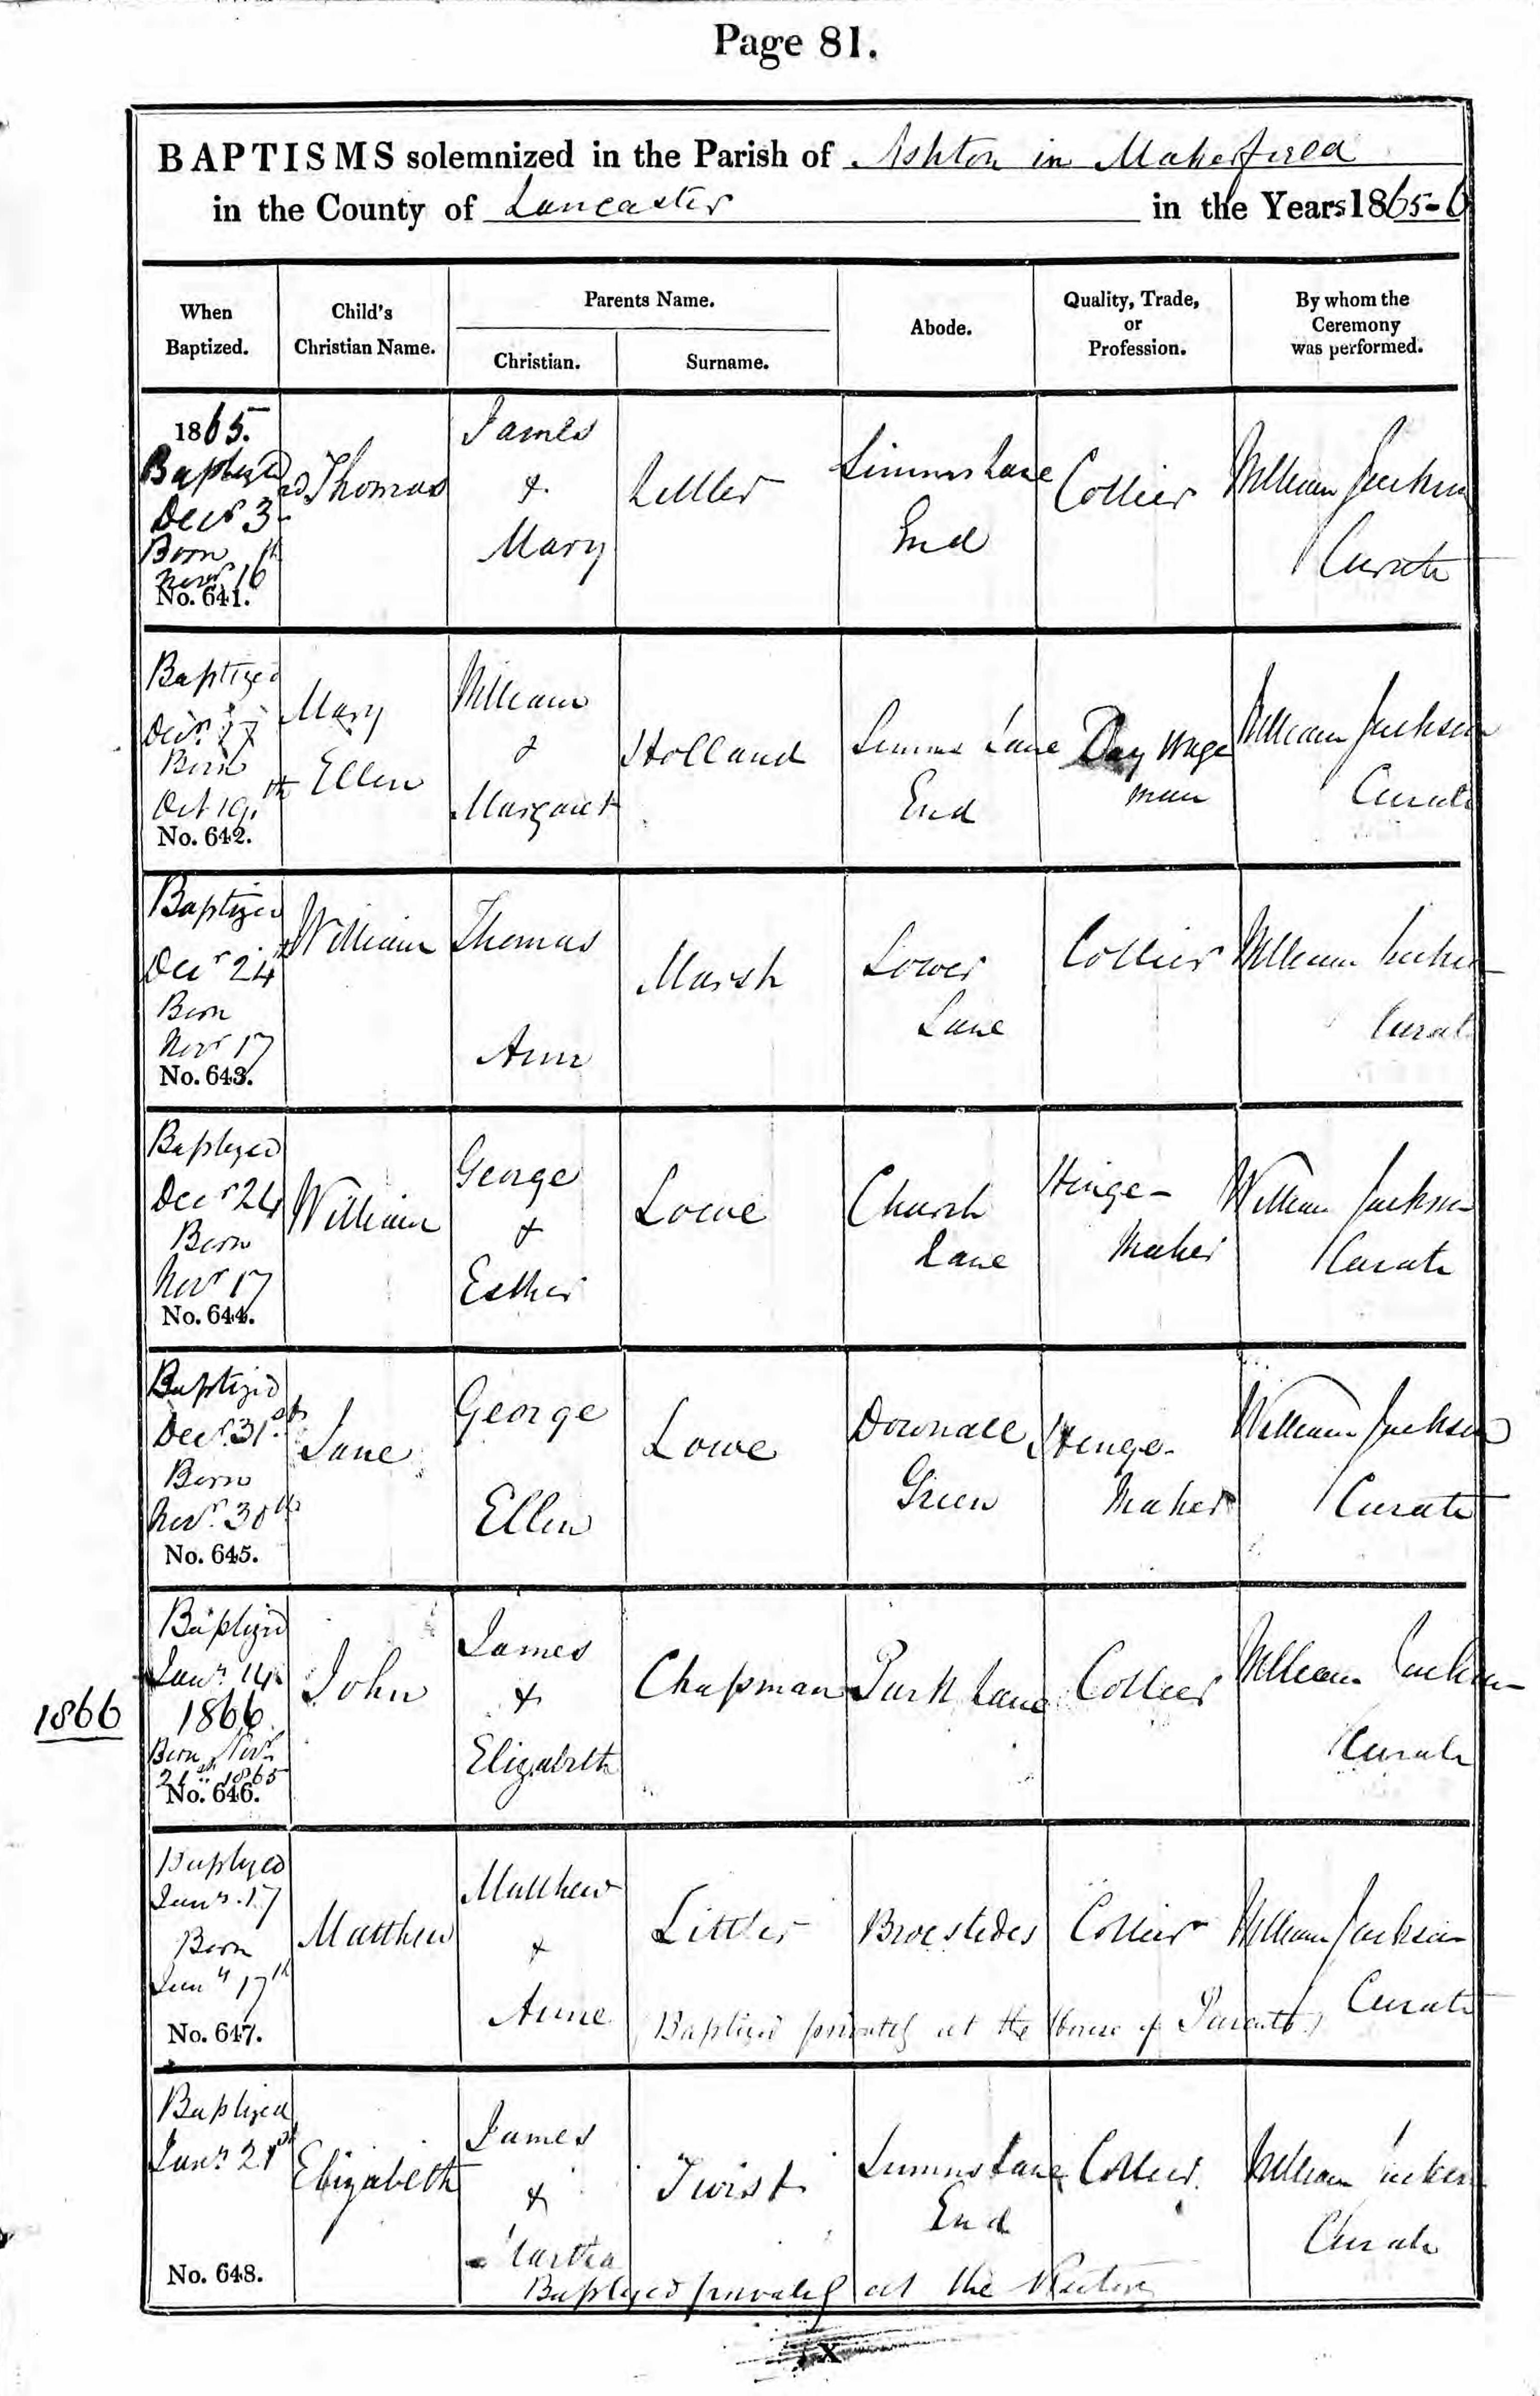 Page 81.
BAPTISMS solemnized in the Parish of Ashton in Makerfield
in the County of Lancaster in the Years 1865-6
When Baptized.
Child's Christian Name.
Parents Name.
Christian.
Surname.
Abode.
Quality, Trade, or Profession.
By whom the Ceremony was performed.
1865.
Baptized
Decr 3rd
Born
Novr 16th
No. 641.
Thomas
James
&
Mary
Littler
Simms Lane
End
Collier
William Jackson
Curate
Baptized
Decr 17
Born
Oct 19th
No. 642.
Mary
Ellen
William
&
Margaret
Holland
Simms Lane
End
Day Wage
man
William Jackson
Curate
Baptized
Decr 24th
Born
Novr 17
No. 643.
William
Thomas
Ann
Marsh
Lower
Lane
Collier
William Jackson
Curate
Baptized
Decr 24
Born
Novr 17
No. 644.
William
George
&
Esther
Lowe
Church
Lane
Hinge-
Maker
William Jackson
Curate
Baptized
Decr. 31st
Born
Novr. 30th
No. 645.
Jane
George
Ellen
Lowe
Downall
Green
Hinge-
Maker
William Jackson
Curate
1866
Baptized
Jany 14
1866
Born Novr
21st 1865
No. 646.
John
James
&
Elizabeth
Chapman
Park Lane
Collier
William Jackson
Curate
Baptized
Jany. 17
Born
Jany 17th
No. 647.
Matthew
Matthew
&
Anne
Littler
Brocstedes
Collier
William Jackson
Curate
(Baptized privately at the House of Parents)
Baptized
Jany 21st
No. 648.
Elizabeth
James
&
Martha
Twist
Simms Lane
End
Collier
William Jackson
Curate
Baptized privately at the